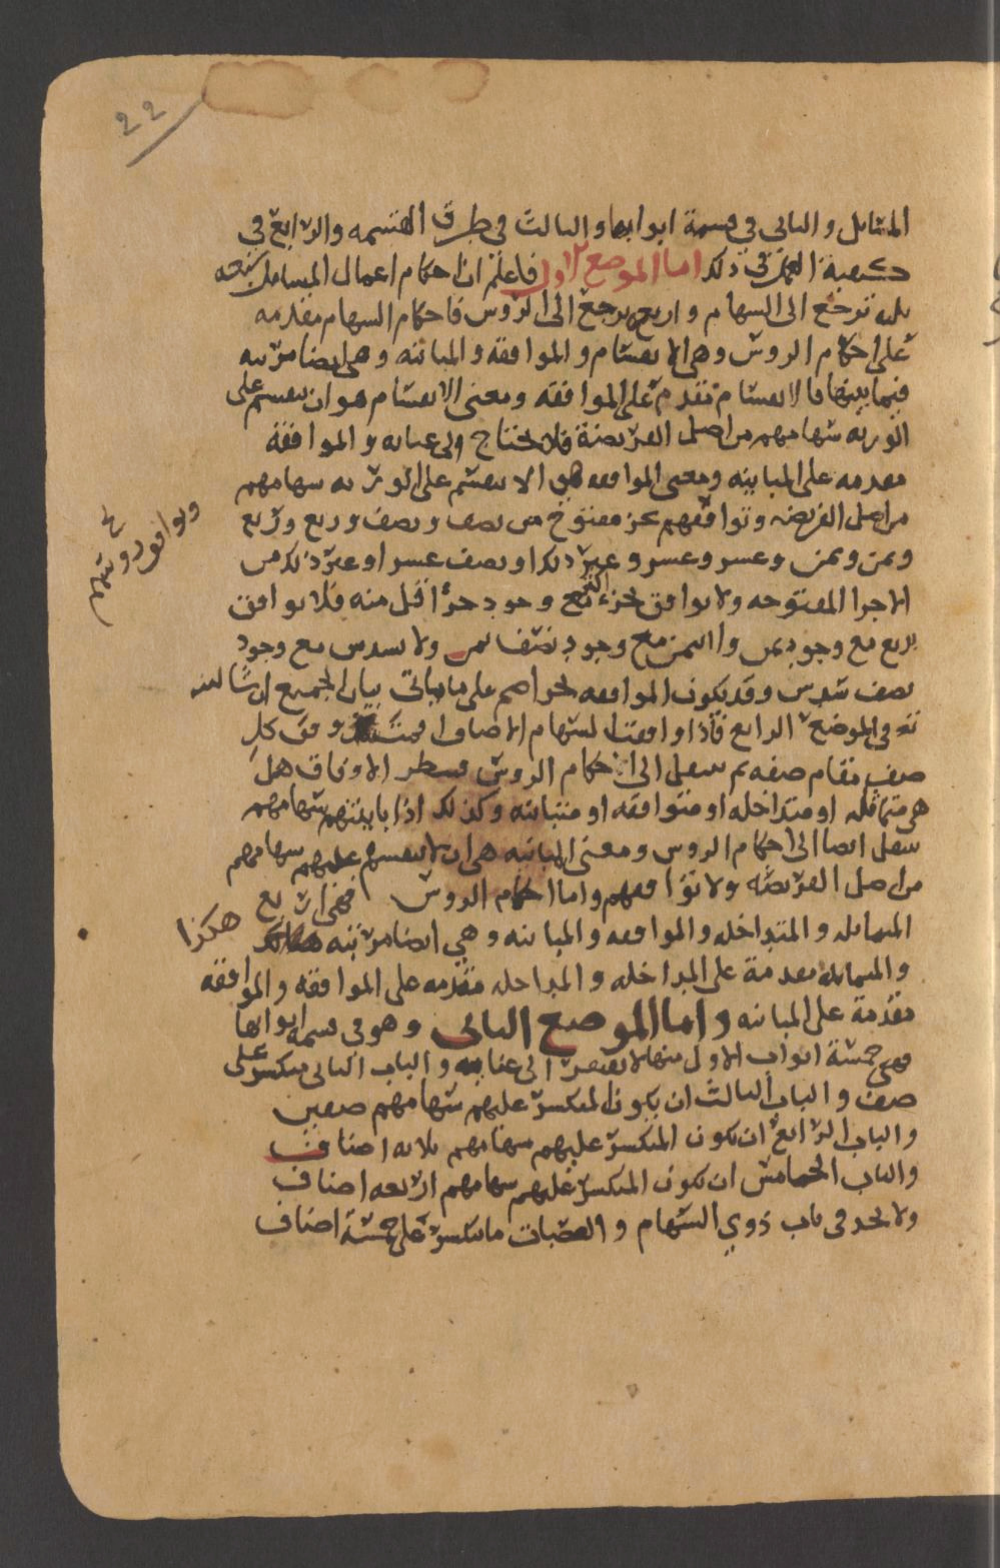 22
المسائل والثاني في قسمة ابوابها والثالث في طرق القسمه والرابع في
كيفية العمل في ذلك اما الموضع الاول فاعلم ان احكام اعمال المسائل سبعه
ثلثه ترجع الى السهام واربع يرجع الى الروس فاحكام السهام مقدمه
على احكام الروس وهي الانقسام والموافقه والمباينه وهي ايضا مرتبه
فيما بينها فالانقسام مقدم على الموافقه ومعنى الانقسام هو ان تنقسم على
الورثه سهامهم من اصل الفريضة فلا يحتاج الى عنايه والموافقة
مقدمه على المباينه ومعنى الموافقه هي الا تنقسم على الورثه سهامهم
من اصل الفريضه وتوافقهم بجزء مفتوح من نصف ونصف وربع وربع
وثمن وثمن وعشر وعشر وغير ذلك او نصف عشر او غير ذلك من
الاجزا المفتوحه ولا توافق بجزء مع وجود جزء اقل منه فلا توافق
بربع مع وجود ثمن ولا الثمن مع وجود نصف ثمن ولا بسدس مع وجود
نصف سدس وقد يكون الموافقه بجزء اصم على ما ياتي بيان الجميع ان شا الله
في الموضع الرابع فاذا وافقت السهام الاصناف وفق كل
صنف مقام صنفه ثم تنتقل الى احكام الروس فتنظر الاوفاق هل
هي متماثله او متداخله او متوافقه او متباينه وكذلك اذا باينتهم سهامهم
تنتقل ايضا الى احكام الروس ومعنى المباينه هي ان لا تنقسم عليهم سهامهم
من اصل الفريضه ولا توافقهم واما احكام الروس فهي اربع
المماثله والمتداخله والموافقه والمباينه وهي ايضا مرتبه هكذا
والمماثله مقدمة على المداخله والمداخله مقدمه على الموافقه والموافقه
مقدمة على المباينه واما الموضع الثاني وهو في قسمه ابوابها
فهي خمسة ابواب الاول منها لا يفتقر الى عنايه والباب الثاني منكسر على
صنف والباب الثالث ان يكون المنكسر عليهم سهامهم صنفين
والباب الرابع ان يكون المنكسر عليهم سهامهم ثلاثه اصناف
والباب الخامس ان يكون المنكسر عليهم سهامهم اربعه اصناف
ولا يوجد في باب ذوي السهام والعصبات ما تنكسر على خمسة اصناف
هكذا